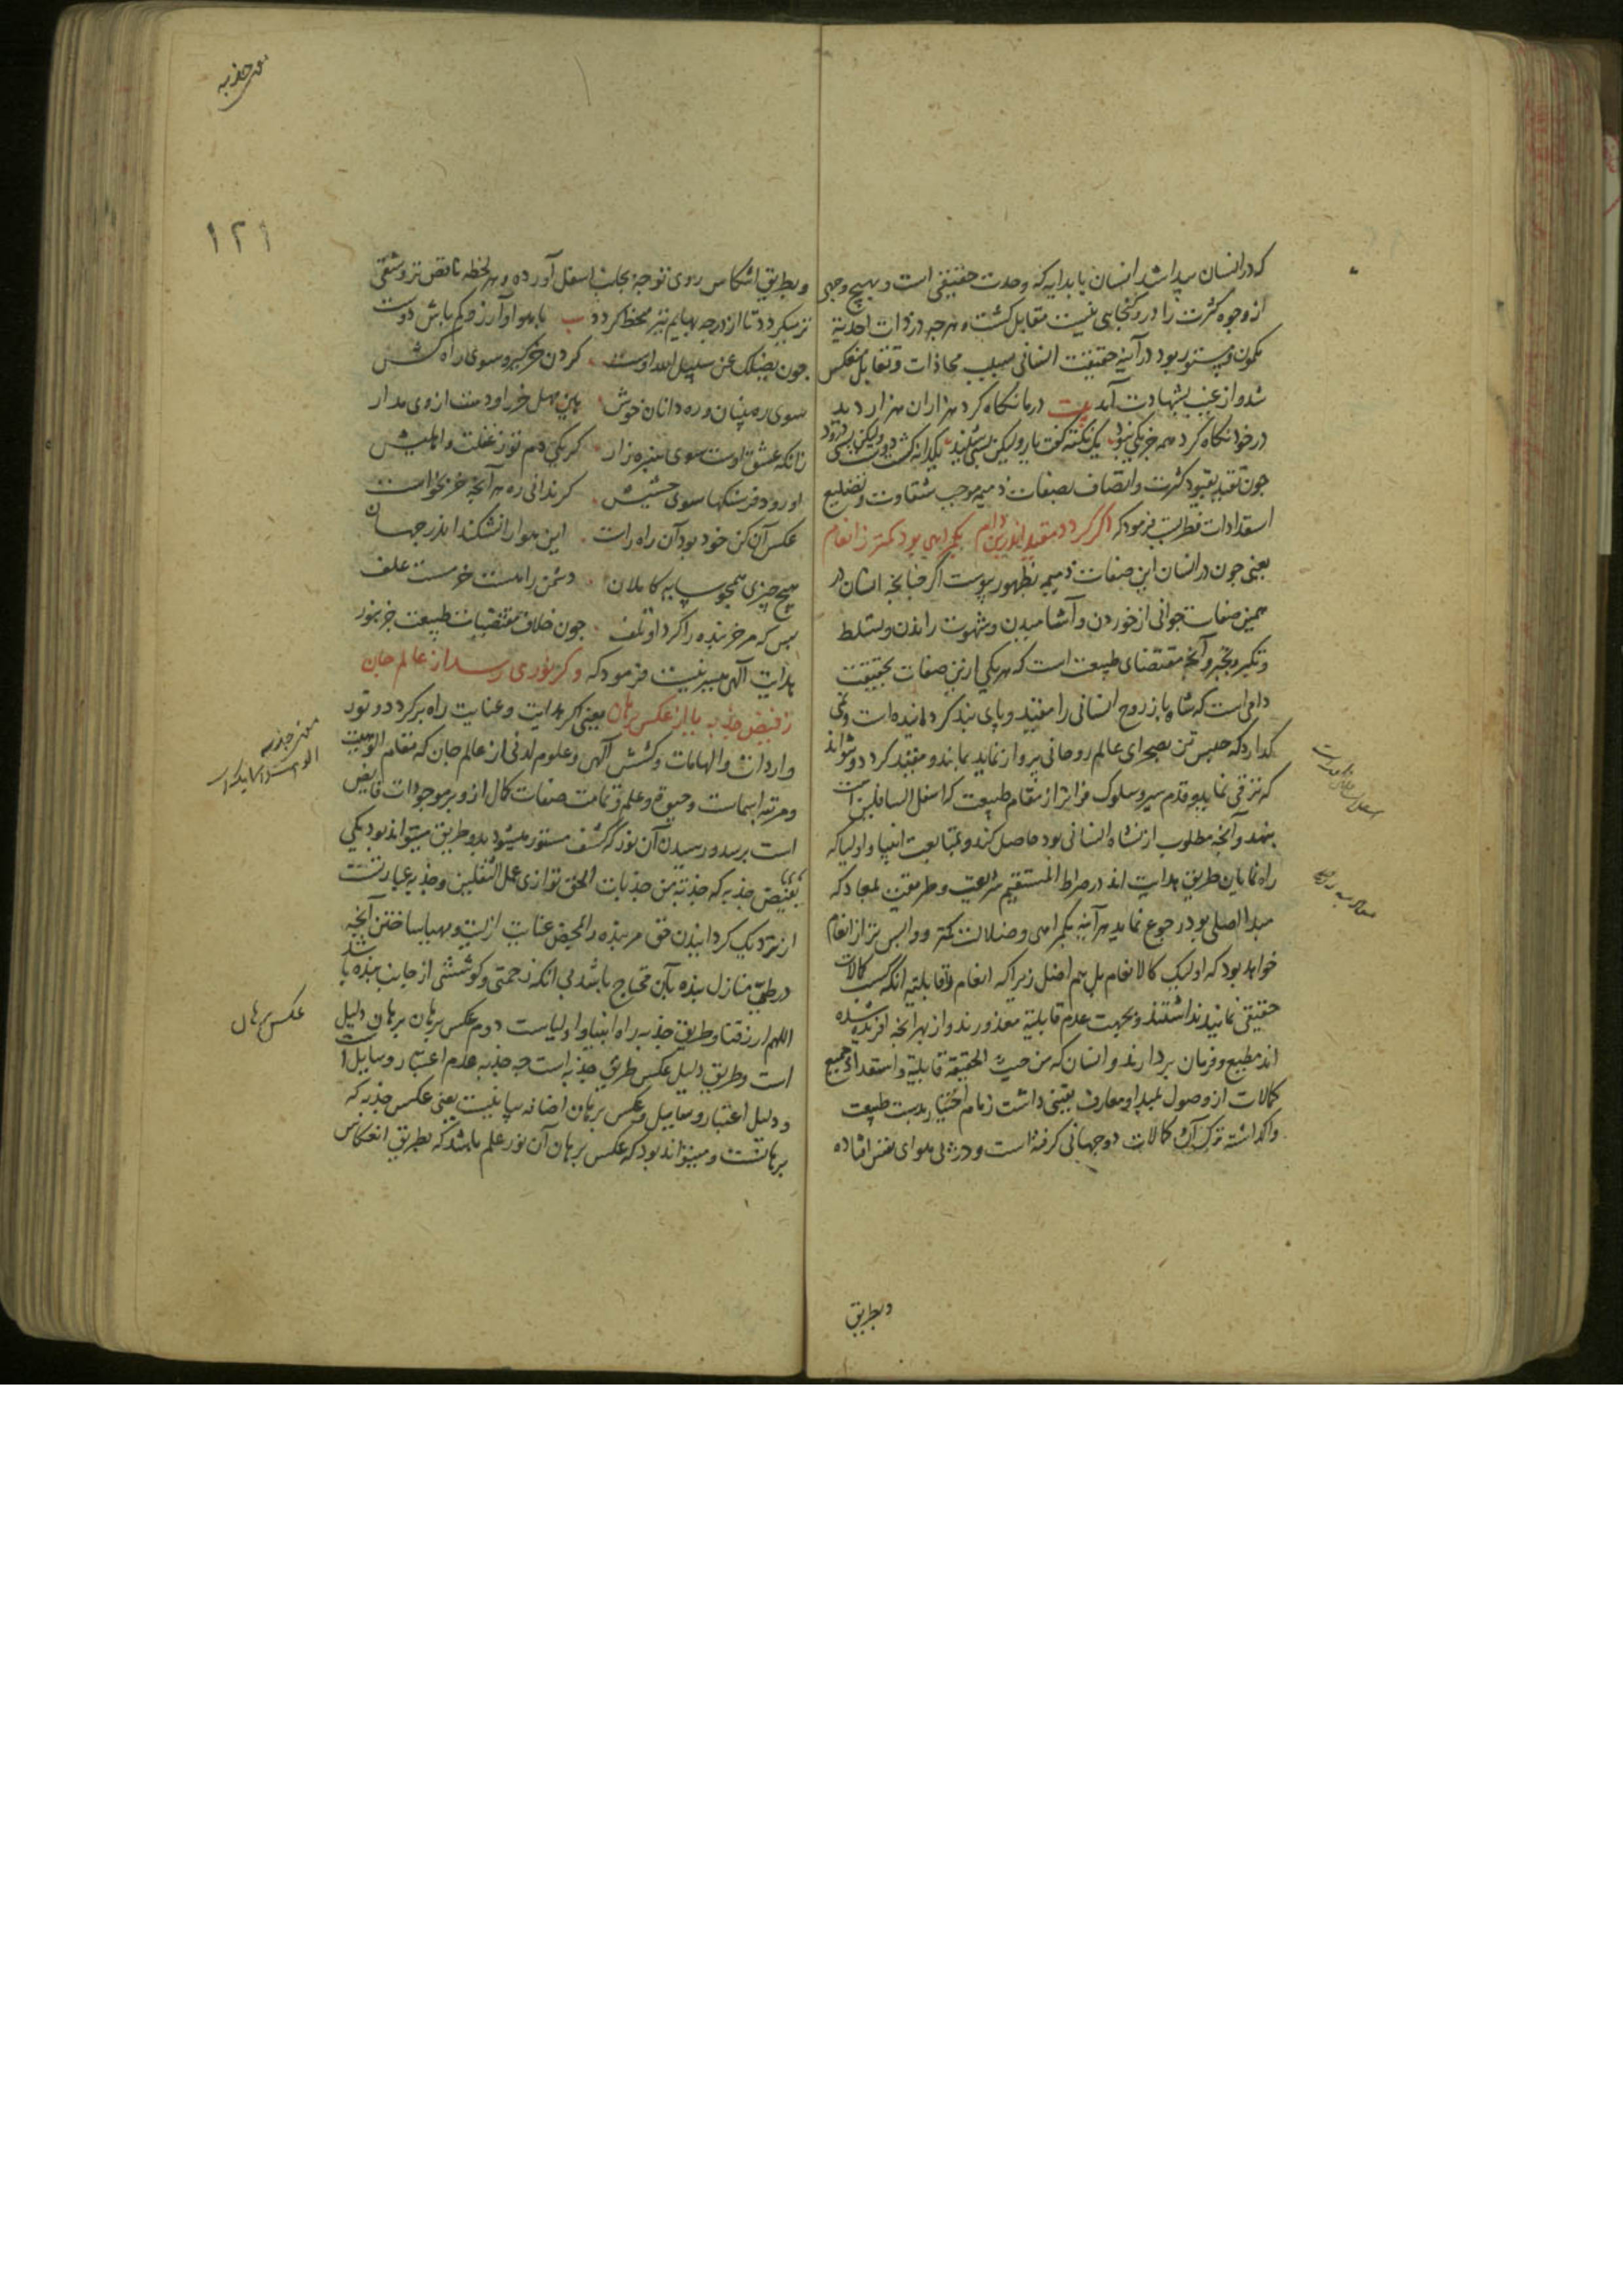 که در انسان پیدا شد انسان با بدایه که وحدت حقیقی است و بهیچ وجهی
از وجوه کثرت را درو گنجایی نیست مقابل گشت و هرچه در ذات احدیة
مکمون و مستور بود در آینه حقیقت انسانی بسبب محاذات و تقابل منعکس
شد و از غیب بشهادت آمد بیت در ما نگاه کرد هزاران هزار دید
در خود نگاه کرد همه جز یکی نبود یک نکته گفت یار ولیکن بسی شنید یکدانه کشت دوست ولیکن بسی درود
چون تقید بقیود کثرت و اتصاف بصفات ذمیمه موجب شقاوت و تضلیع
استعدادات فطریست فرمود که اگر گردد مقید اندرین دام بگمراهی بود کمتر ز انعام
یعنی چون در انسان این صفات ذمیمه بظهور پیوست اگر چنانچه انسان در
همین صفات حیوانی از خوردن و آشامیدن و شهوت راندن و تسلط
و تکبر و تجبر و آنچه مقتضای طبیعت است که هر یکی ازین صفات بحقیقت
دامی است که شاه باز روح انسانی را مقید و پای بند گردانیده است و نمی
گذارد که حبس تن بصحرای عالم روحانی پرواز نماید بماند و مقید گردد و نتواند
که ترقی نماید و قدم سیر و سلوک فراتر از مقام طبیعت که اسفل السافلین است
بنهد و آنچه مطلوب از نشاه انسانی بود حاصل کند و بمتابعت انبیا و اولیا که
راه نمایان طریق هدایت اند در صراط المستقیم شریعت و طریقت بمعاد که
مبدا اصلی بود رجوع نماید هر آینه بگمراهی و ضلالت کمتر و واپس تر از انعام
خواهد بود که اولیک کالانعام بل هم اضل زیرا که انعام را قابلیة آنکه کسب کمالات
حقیقی نمایند نداشتند و بجهت عدم قابلیة معذورند و از بهر آنچه آفریده شده
اند مطیع و فرمان بردارند و انسان که من حیث الحقیقة قابلیة و استعداد جمیع
کمالات از وصول بمبدا و معارف یقینی داشت زمام اختیار بدست طبیعت
واگذاشته ترک آن کمالات دو جهانی گرفته است و در پی هوای نفس افتاده
وبطریق
معنی جذبه
۱۲۱
و بطریق انتکاس روی توجه بجانب اسفل آورده و هر لحظه ناقص تر و شقی
تر میگردد تا از درجه بهایم نیز منحط گردد ب با هوا و آرزو کم باش دوست
چون یضلک عن سبیل الله اوست گردن خر گیر و سوی راه کش
سوی ره بینان و ره دانان خوش هین مهل خر را و دست از وی مدار
زانکه عشق اوست سوی سبزه زار گر یکی دم تو ز غفلت واهلیش
او رود فرسنگها سوی حشیش گر ندانی ره هر آنچه خر بخواست
عکس آن کن خود بود آن راه راست این هوا را نشکند اندر جهان
هیچ چیزی همچو سایه کاملان دشمن راهست خر مست علف
بس که مر خر بنده را کرد او تلف چون خلاف مقتضیات طبیعت خر بنور
هدایت الهی میسر نیست فرمود که وگر نوری رسد از عالم جان
ز فیض جذبه یا از عکس برهان یعنی اگر هدایت و عنایت راهبر گردد و نور
واردات و الهامات و کشش الهی و علوم لدنی از عالم جان که مقام الوهیت
و مرتبه اسماست و حیوة و علم و تمامت صفات کمال ازو بر موجودات فایض
است برسد و رسیدن آن نور که کشف مستور میشود بدو طریق میتواند بود یکی
بفیض جذبه که جذبة من جذبات الحق توازی عمل الثقلین و جذبه عبارتست
از نزدیک گردانیدن حق مر بنده را بمحض عنایت ازلیت و مهیا ساختن آنچه
در طی منازل بنده بآن محتاج باشد بی آنکه زحمتی و کوششی از جانب بنده باشد
اللهم ارزقنا و طریق جذبه راه انبیا و اولیاست دوم عکس برهان برهان دلیل
است و طریق دلیل عکس طریق جذبه است چه جذبه عدم اعتبار وسایل است
و دلیل اعتبار وسایل و عکس برهان اضافه بیانیست یعنی عکس جذبه که
برهانست و میتواند بود که عکس برهان آن نور علم باشد که بطریق انعکاس
معنی جذبه
عکس برهان